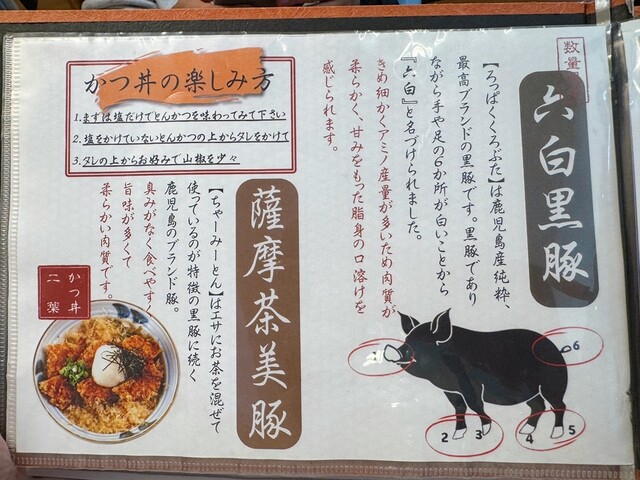 数量
六白黒豚
【ろっぱくくろぶた】は鹿児島産純粋、
最高ブランドの黒豚です。黒豚であり
ながら手や足の6か所が白いことから
『六白』と名づけられました。
きめ細かくアミノ産量が多いため肉質が
柔らかく、甘みをもった脂身の口溶けを
感じられます。
1
2
3
4
5
6
かつ丼の楽しみ方
1.まずは塩だけでとんかつを味わってみて下さい
2.塩をかけていないとんかつの上からタレをかけて
3.タレの上からお好みで山椒を少々
薩摩茶美豚
【ちゃーみーとん】はエサにお茶を混ぜて
使っているのが特徴の黒豚に続く
鹿児島のブランド豚。
臭みがなく食べやすく
旨味が多くて
柔らかい肉質です。
かつ丼
二葉